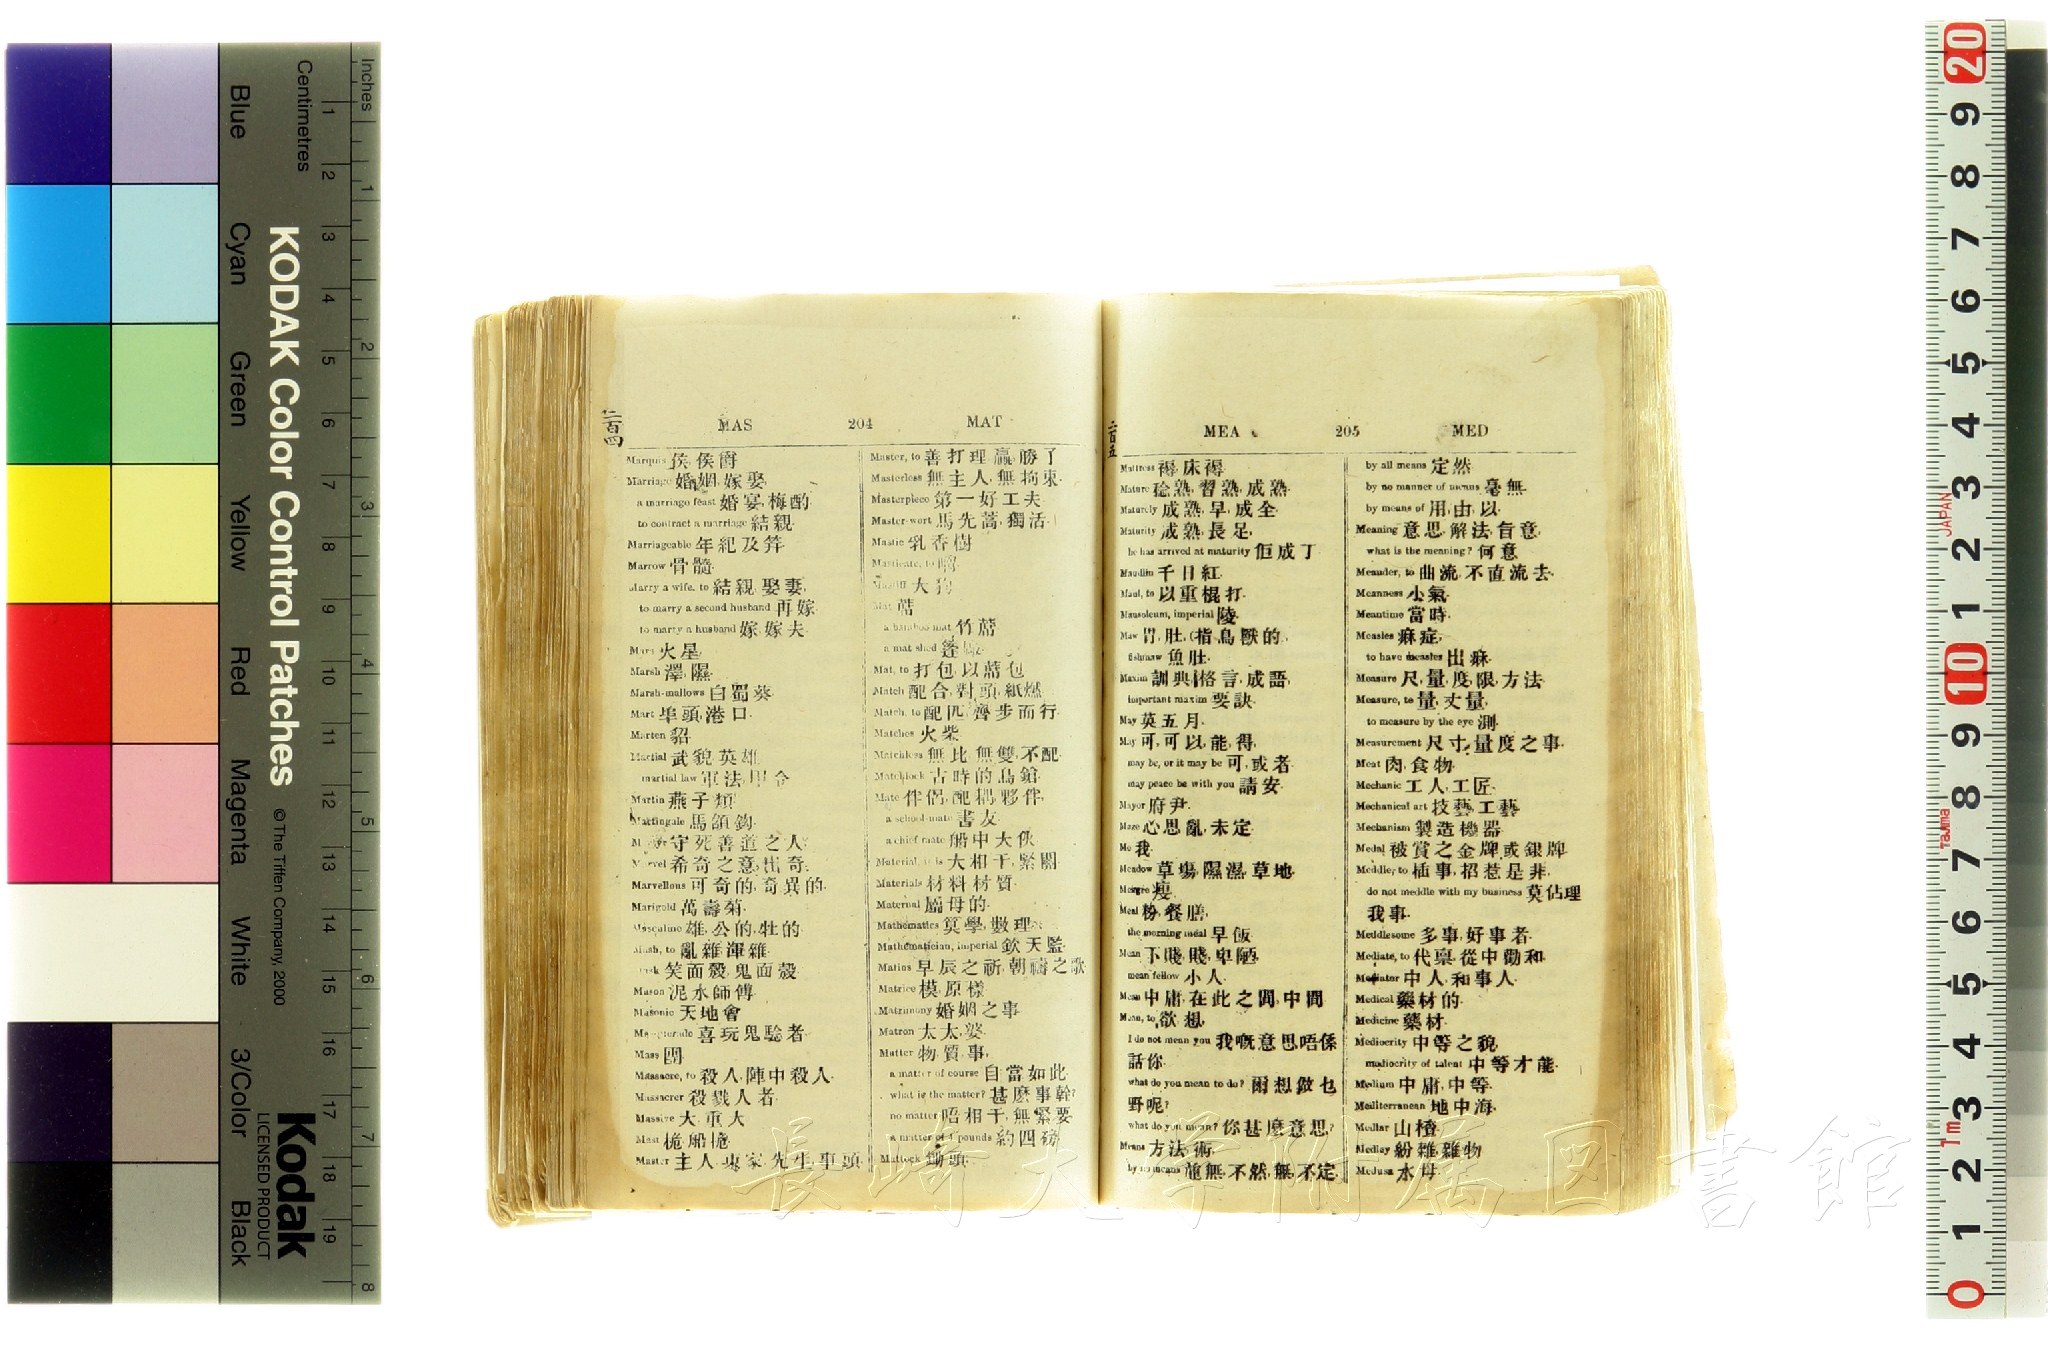 Blue
Cyan
Green
Yellow
Red
Magenta
White
3/Color
Black
Centimetres
Inches
KODAK Color Control Patches
© The Tiffen Company, 2000
Kodak
LICENSED PRODUCT
二百四
MAS 204 MAT
Marquis 侯, 侯爵
Marriage 婚姻, 嫁娶
a marriage feast 婚宴, 梅酌
to contract a marriage 結親
Marriageable 年紀及笄
Marrow 骨髓
Marry a wife, to 結親, 娶妻
to marry a second husband 再嫁
to marry a husband 嫁, 嫁夫
Mars 火星
Marsh 澤, 隰
Marsh-mallows 白蜀葵
Mart 埠頭, 港口
Marten 貂
Martial 武貌, 英雄
martial law 軍法
Martin 燕子類
Martingale 馬頷鈎
守死善道之人
Marvel 希奇之意, 出奇
Marvellous 可奇的, 奇異的
Marigold 萬壽菊
Masculine 雄, 公的, 牡的
Mash, to 亂雜, 渾雜
Mask 笑面殼, 鬼面殼
Mason 泥水師傅
Masonic 天地會
Masquerade 喜玩鬼臉者
Mass 團
Massacre, to 殺人, 陣中殺人
Massacrer 殺戮人者
Massive 大, 重大
Mast 桅, 船桅
Master 主人, 東家, 先生, 事頭
Master, to 善打理, 贏, 勝了
Masterless 無主人, 無拘束
Masterpiece 第一好工夫
Master-wort 馬先蒿, 獨活
Mastic 乳香樹
Masticate, to 嚼
Mastiff 大狗
Mat 蓆
a bamboo mat 竹蓆
a mat shed 篷
Mat, to 打包, 以蓆包
Match 配合, 對頭, 紙燃
Match, to 配匹, 齊步而行
Matches 火柴
Matchless 無比, 無雙, 不配
Matchlock 古時的鳥鎗
Mate 伴侶, 配耦, 夥伴
a school-mate 書友
a chief mate 船中大伙
Material, it is 大相干, 緊關
Materials 材料, 材質
Maternal 屬母的
Mathematics 算學, 數理
Mathematician, imperial 欽天監
Matins 早辰之祈, 朝禱之歌
Matrice 模, 原樣
Matrimony 婚姻之事
Matron 太太, 婆
Matter 物, 質, 事
a matter of course 自當如此
what is the matter? 甚麼事幹?
no matter 唔相干, 無緊要
a matter of 4 pounds 約四磅
Mattock 鋤頭
二百五
MEA 205 MED
Mattress 褥, 床褥
Mature 稔熟, 習熟, 成熟
Maturely 成熟, 早, 成全
Maturity 成熟, 長足
he has arrived at maturity 佢成丁
Maudlin 千日紅
Maul, to 以重棍打
Mausoleum, imperial 陵
Maw 胃, 肚, (指鳥獸的
fishmaw 魚肚
Maxim 訓典, 格言, 成語
important maxim 要訣
May 英五月
May 可, 可以, 能, 得
may be, or it may be 可, 或者
may peace be with you 請安
Mayor 府尹
Maze 心思亂, 未定
Me 我
Meadow 草塲, 隰濕, 草地
Meagre 瘦
Meal 粉, 餐, 膳
the morning meal 早飯
Mean 下賤, 賤, 卑陋
mean fellow 小人
Mean 中庸, 在此之間, 中間
Mean, to 欲, 想
I do not mean you 我嘅意思唔係
話你
what do you mean to do? 爾想做乜
野呢?
what do you mean? 你甚麼意思?
Means 方法, 術
by no means 總無, 不然, 無, 不定
by all means 定然
by no manner of means 毫無
by means of 用, 由, 以
Meaning 意思, 解法, 旨意
what is the meaning? 何意
Meander, to 曲流, 不直流去
Meanness 小氣
Meantime 當時
Measles 痳症
to have measles 出痳
Measure 尺, 量, 度, 限, 方法
Measure, to 量, 丈量
to measure by the eye 測
Measurement 尺寸, 量度之事
Meat 肉, 食物
Mechanic 工人, 工匠
Mechanical art 技藝, 工藝
Mechanism 製造機器
Medal 被賞之金牌, 或銀牌
Meddle, to 插事, 招惹是非
do not meddle with my business 莫佔理
我事
Meddlesome 多事, 好事者
Mediate, to 代禀, 從中勸和
Mediator 中人, 和事人
Medical 藥材的
Medicine 藥材
Mediocrity 中等之貌
mediocrity of talent 中等才能
Medium 中庸, 中等
Mediterranean 地中海
Medlar 山楂
Medley 紛雜, 雜物
Medusa 水母
長崎大学附属図書館
JAPAN
Tajima
1m